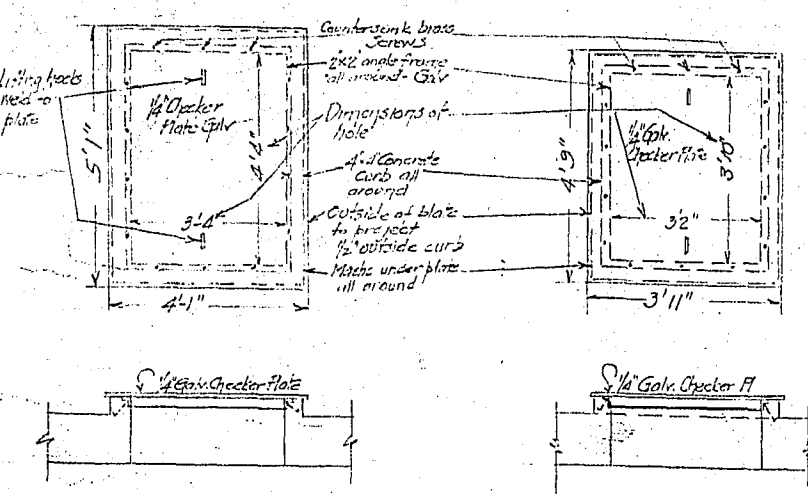 Countersink brass
Screws
2"x2" angle frame
all around - Galv
Lifting hooks
weld to
plate
1/4" Checker
Plate Galv
Dimensions of
hole
4"x4" Concrete
curb all
around
Outside of plate
to project
1/2" outside curb
under plate
all around
5'1"
4'4"
3'-4"
4'-1"
1/4" Galv.
Checker Plate
4'9"
3'10"
3'2"
3'11"
1/4" Galv. Checker Plate
1/4" Galv. Checker Pl